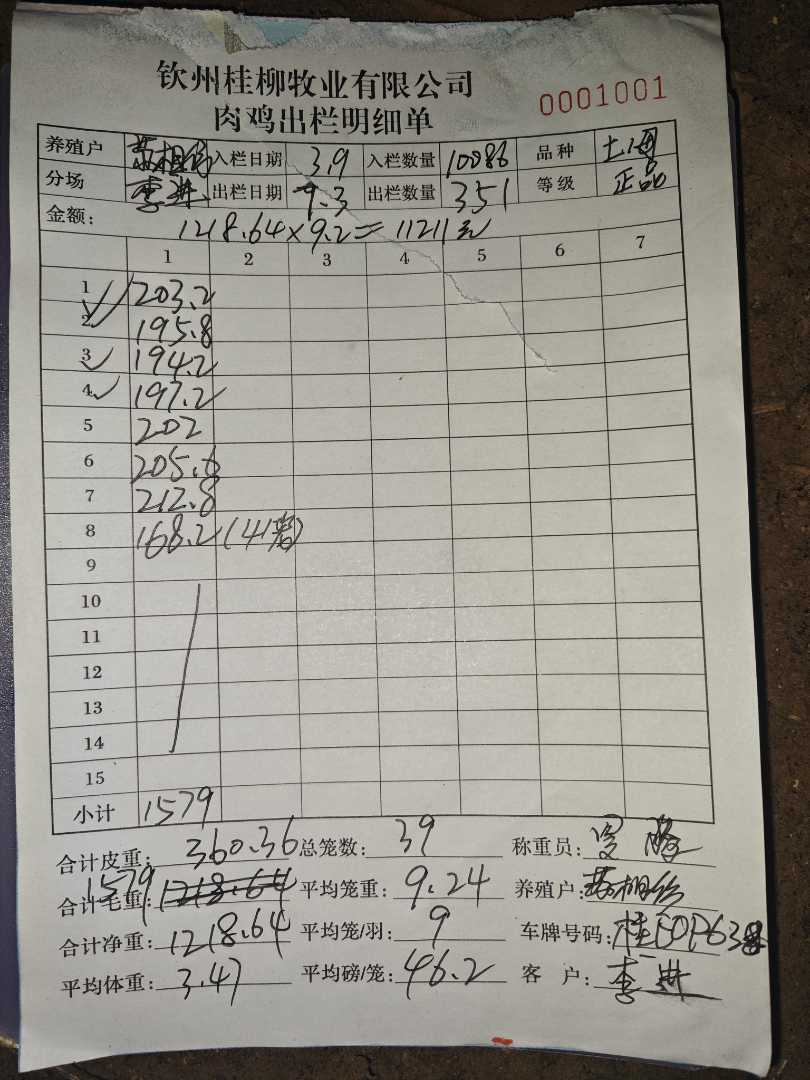 钦州桂柳牧业有限公司
肉鸡出栏明细单 0001001
养殖户 入栏日期 3.9 入栏数量 10086 品种 土
分场 李进 出栏日期 9.3 出栏数量 351 等级 正品
金额: 1218.64×9.2=11211元
1 2 3 4 5 6 7
1 203.2
2 195.8
3 194.2
4 197.2
5 202
6 205.6
7 212.8
8 168.2(41
9
10
11
12
13
14
15
小计 1579
合计皮重: 360.36 总笼数: 39 称重员:
合计毛重: 1579 1218.64 平均笼重: 9.24 养殖户:
合计净重: 1218.64 平均笼/羽: 9 车牌号码: 桂
平均体重: 3.47 平均磅/笼: 46.2 客户: 李进